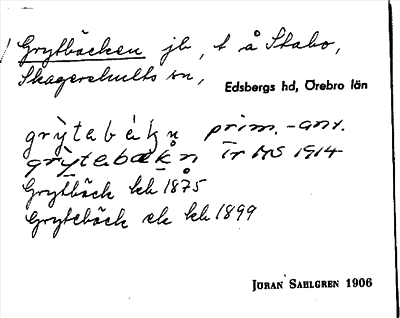 Grytbäcken jb, t å Stabo,
Skagershults sn,
Edsbergs hd, Örebro län
grỳtabákņ prim.-anv.
grỳtebækån Ir MS 1914
Grytbäck kb 1875
Grytebäck ek kb 1899
JÖRAN SAHLGREN 1906